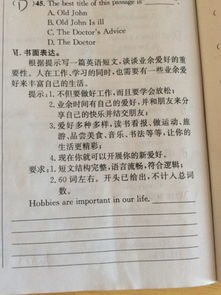 (D)45. The best title of this passage is ____.
A. Old John
B. Old John Is ill
C. The Doctor's Advice
D. The Doctor
Ⅵ. 书面表达。
根据提示写一篇英语短文,谈谈业余爱好的重
要性。人在工作、学习的同时,也需要有一些业余爱
好来丰富自己的生活。
提示:1. 不但要做好工作,而且要学会放松;
2. 业余时间有自己的爱好,并和朋友来分
享自己的快乐并结交朋友;
3. 爱好多种多样,读书看报、做运动、旅
游、品尝美食、音乐、书法等等,让你的
生活更精彩;
4. 现在你就可以开展你的新爱好。
要求:1. 短文结构完整,语言流畅,符合逻辑;
2. 60词左右。开头已给出,不计入总词
数。
Hobbies are important in our life.